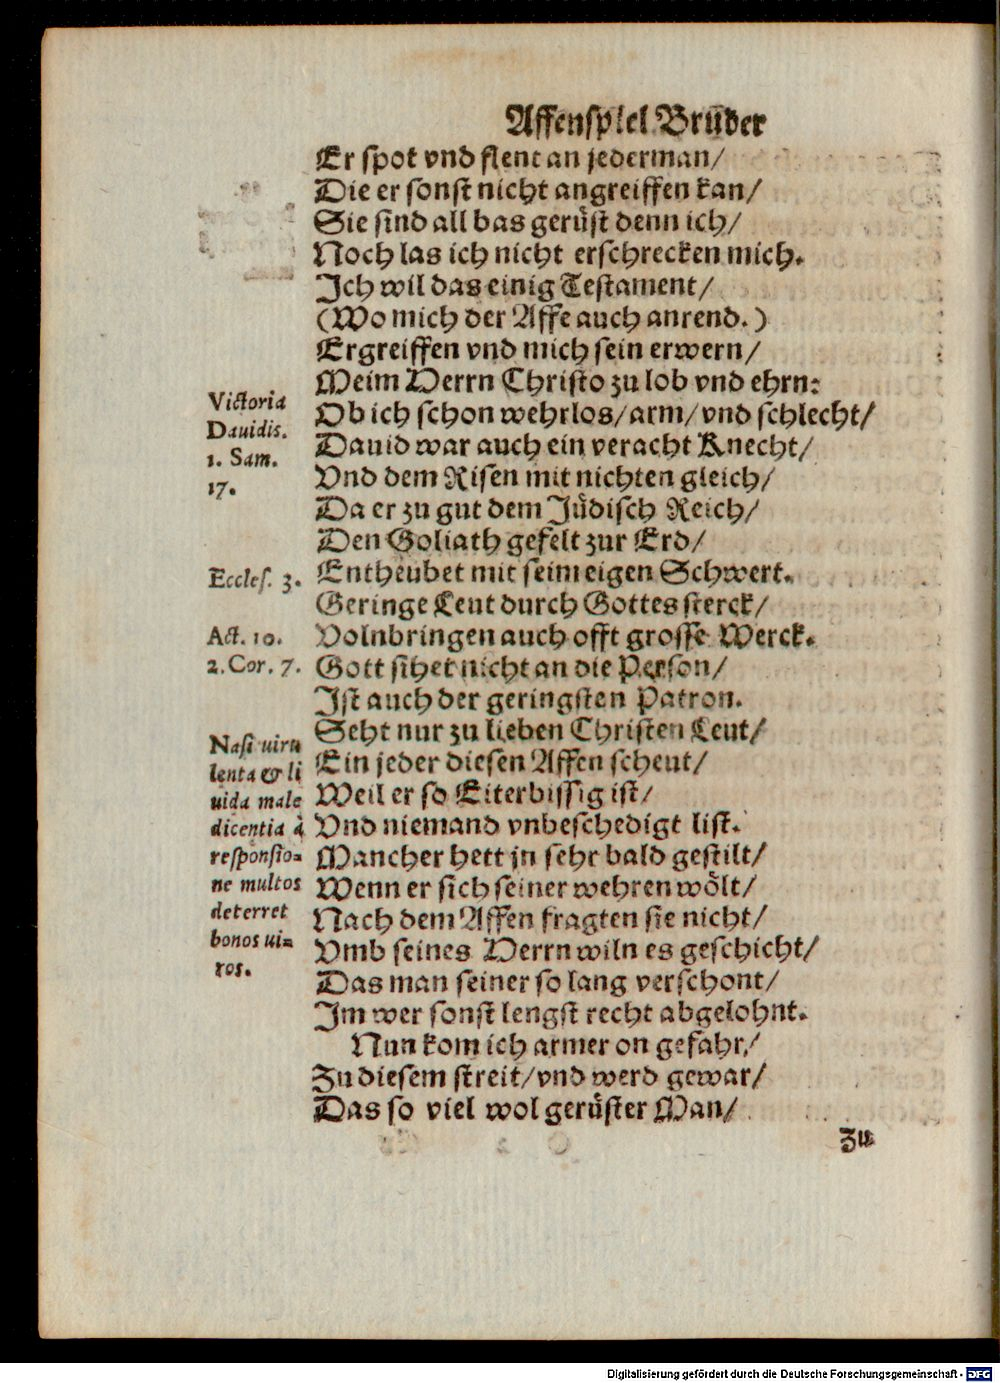 Affenspiel Brůder
Er spot vnd flent an jederman/
Die er sonst nicht angreiffen kan/
Sie sind all bas gerůst denn ich/
Noch las ich nicht erschrecken mich.
Ich wil das einig Testament/
(Wo mich der Affe auch anrend.)
Ergreiffen vnd mich sein erwern/
Meim Herrn Christo zu lob vnd ehrn:
Ob ich schon wehrlos/arm/vnd schlecht/
Dauid war auch ein veracht Knecht/
Vnd dem Risen mit nichten gleich/
Da er zu gut dem Jůdisch Reich/
Den Goliath gefelt zur Erd/
Entheubet mit seim eigen Schwert.
Geringe Leut durch Gottes sterck/
Volnbringen auch offt grosse Werck.
Gott sihet nicht an die Person/
Ist auch der geringsten Patron.
Seht nur zu lieben Christen Leut/
Ein jeder diesen Affen scheut/
Weil er so Eiterbissig ist/
Vnd niemand vnbeschedigt list.
Mancher hett jn sehr bald gestilt/
Wenn er sich seiner wehren wölt/
Nach dem Affen fragten sie nicht/
Vmb seines Herrn wiln es geschicht/
Das man seiner so lang verschont/
Im wer sonst lengst recht abgelohnt.
Nun kom ich armer on gefahr/
Zu diesem streit/vnd werd gewar/
Das so viel wol gerůster Man/
Zu
Victoria
Dauidis.
1. Sam.
17.
Eccles. 3.
Act. 10.
2. Cor. 7.
Nasi uiru
lenta & li
uida male
dicentia à
responsio-
ne multos
deterret
bonos ui-
ros.
Digitalisierung gefördert durch die Deutsche Forschungsgemeinschaft - DFG